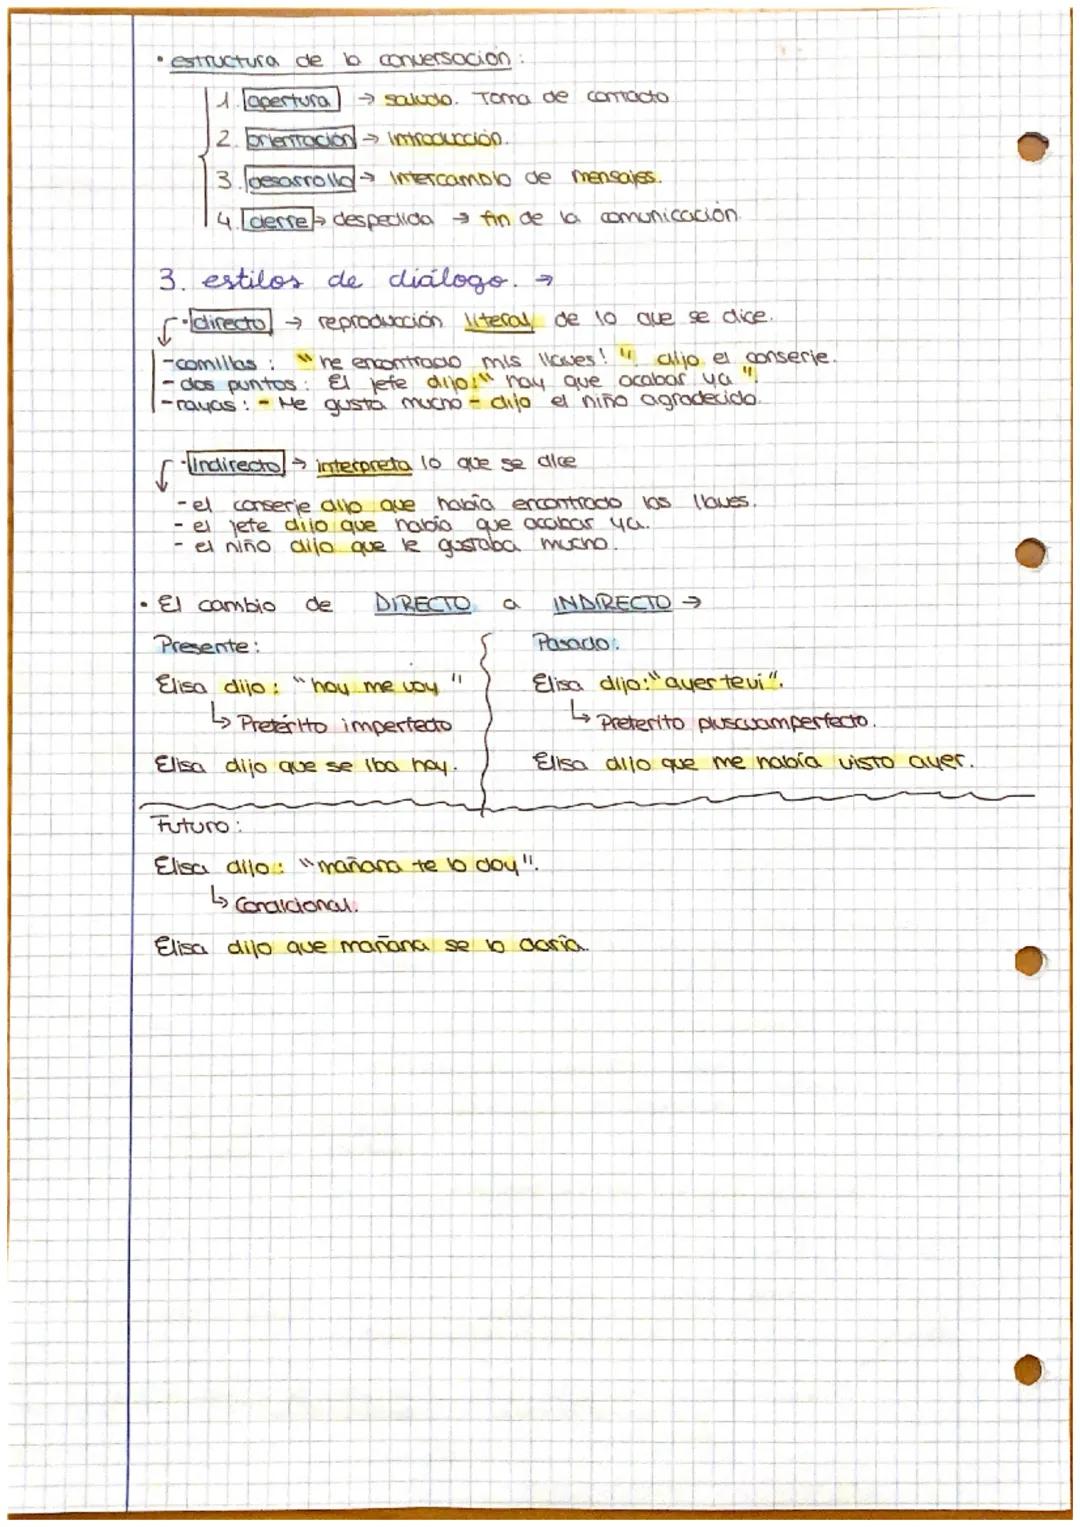 • estructura de la conversación:
1. apertura → saludo. Toma de contacto
2. orientación → introducción.
3. desarrollo → intercambio de mensajes.
4. cierre → despedida → fin de la comunicación.
3. estilos de diálogo. →
· directo → reproducción literal de lo que se dice.
- comillas: "he encontrado mis llaves!", dijo el conserje.
- dos puntos: El jefe dijo: "hay que acabar ya".
- rayas: - Me gusta mucho - dijo el niño agradecido.
· Indirecto → interpreta lo que se dice
- el conserje dijo que había encontrado las llaves.
- el jefe dijo que había que acabar ya.
- el niño dijo que le gustaba mucho.
• El cambio de DIRECTO a INDIRECTO →
Presente:
Elisa dijo: "hoy me voy"
↳ Pretérito imperfecto
Elisa dijo que se iba hoy.
Pasado:
Elisa dijo: "ayer te vi".
↳ Preterito pluscuamperfecto.
Elisa dijo que me había visto ayer.
Futuro:
Elisa dijo: "mañana te lo doy".
↳ Condicional.
Elisa dijo que mañana se lo daría.